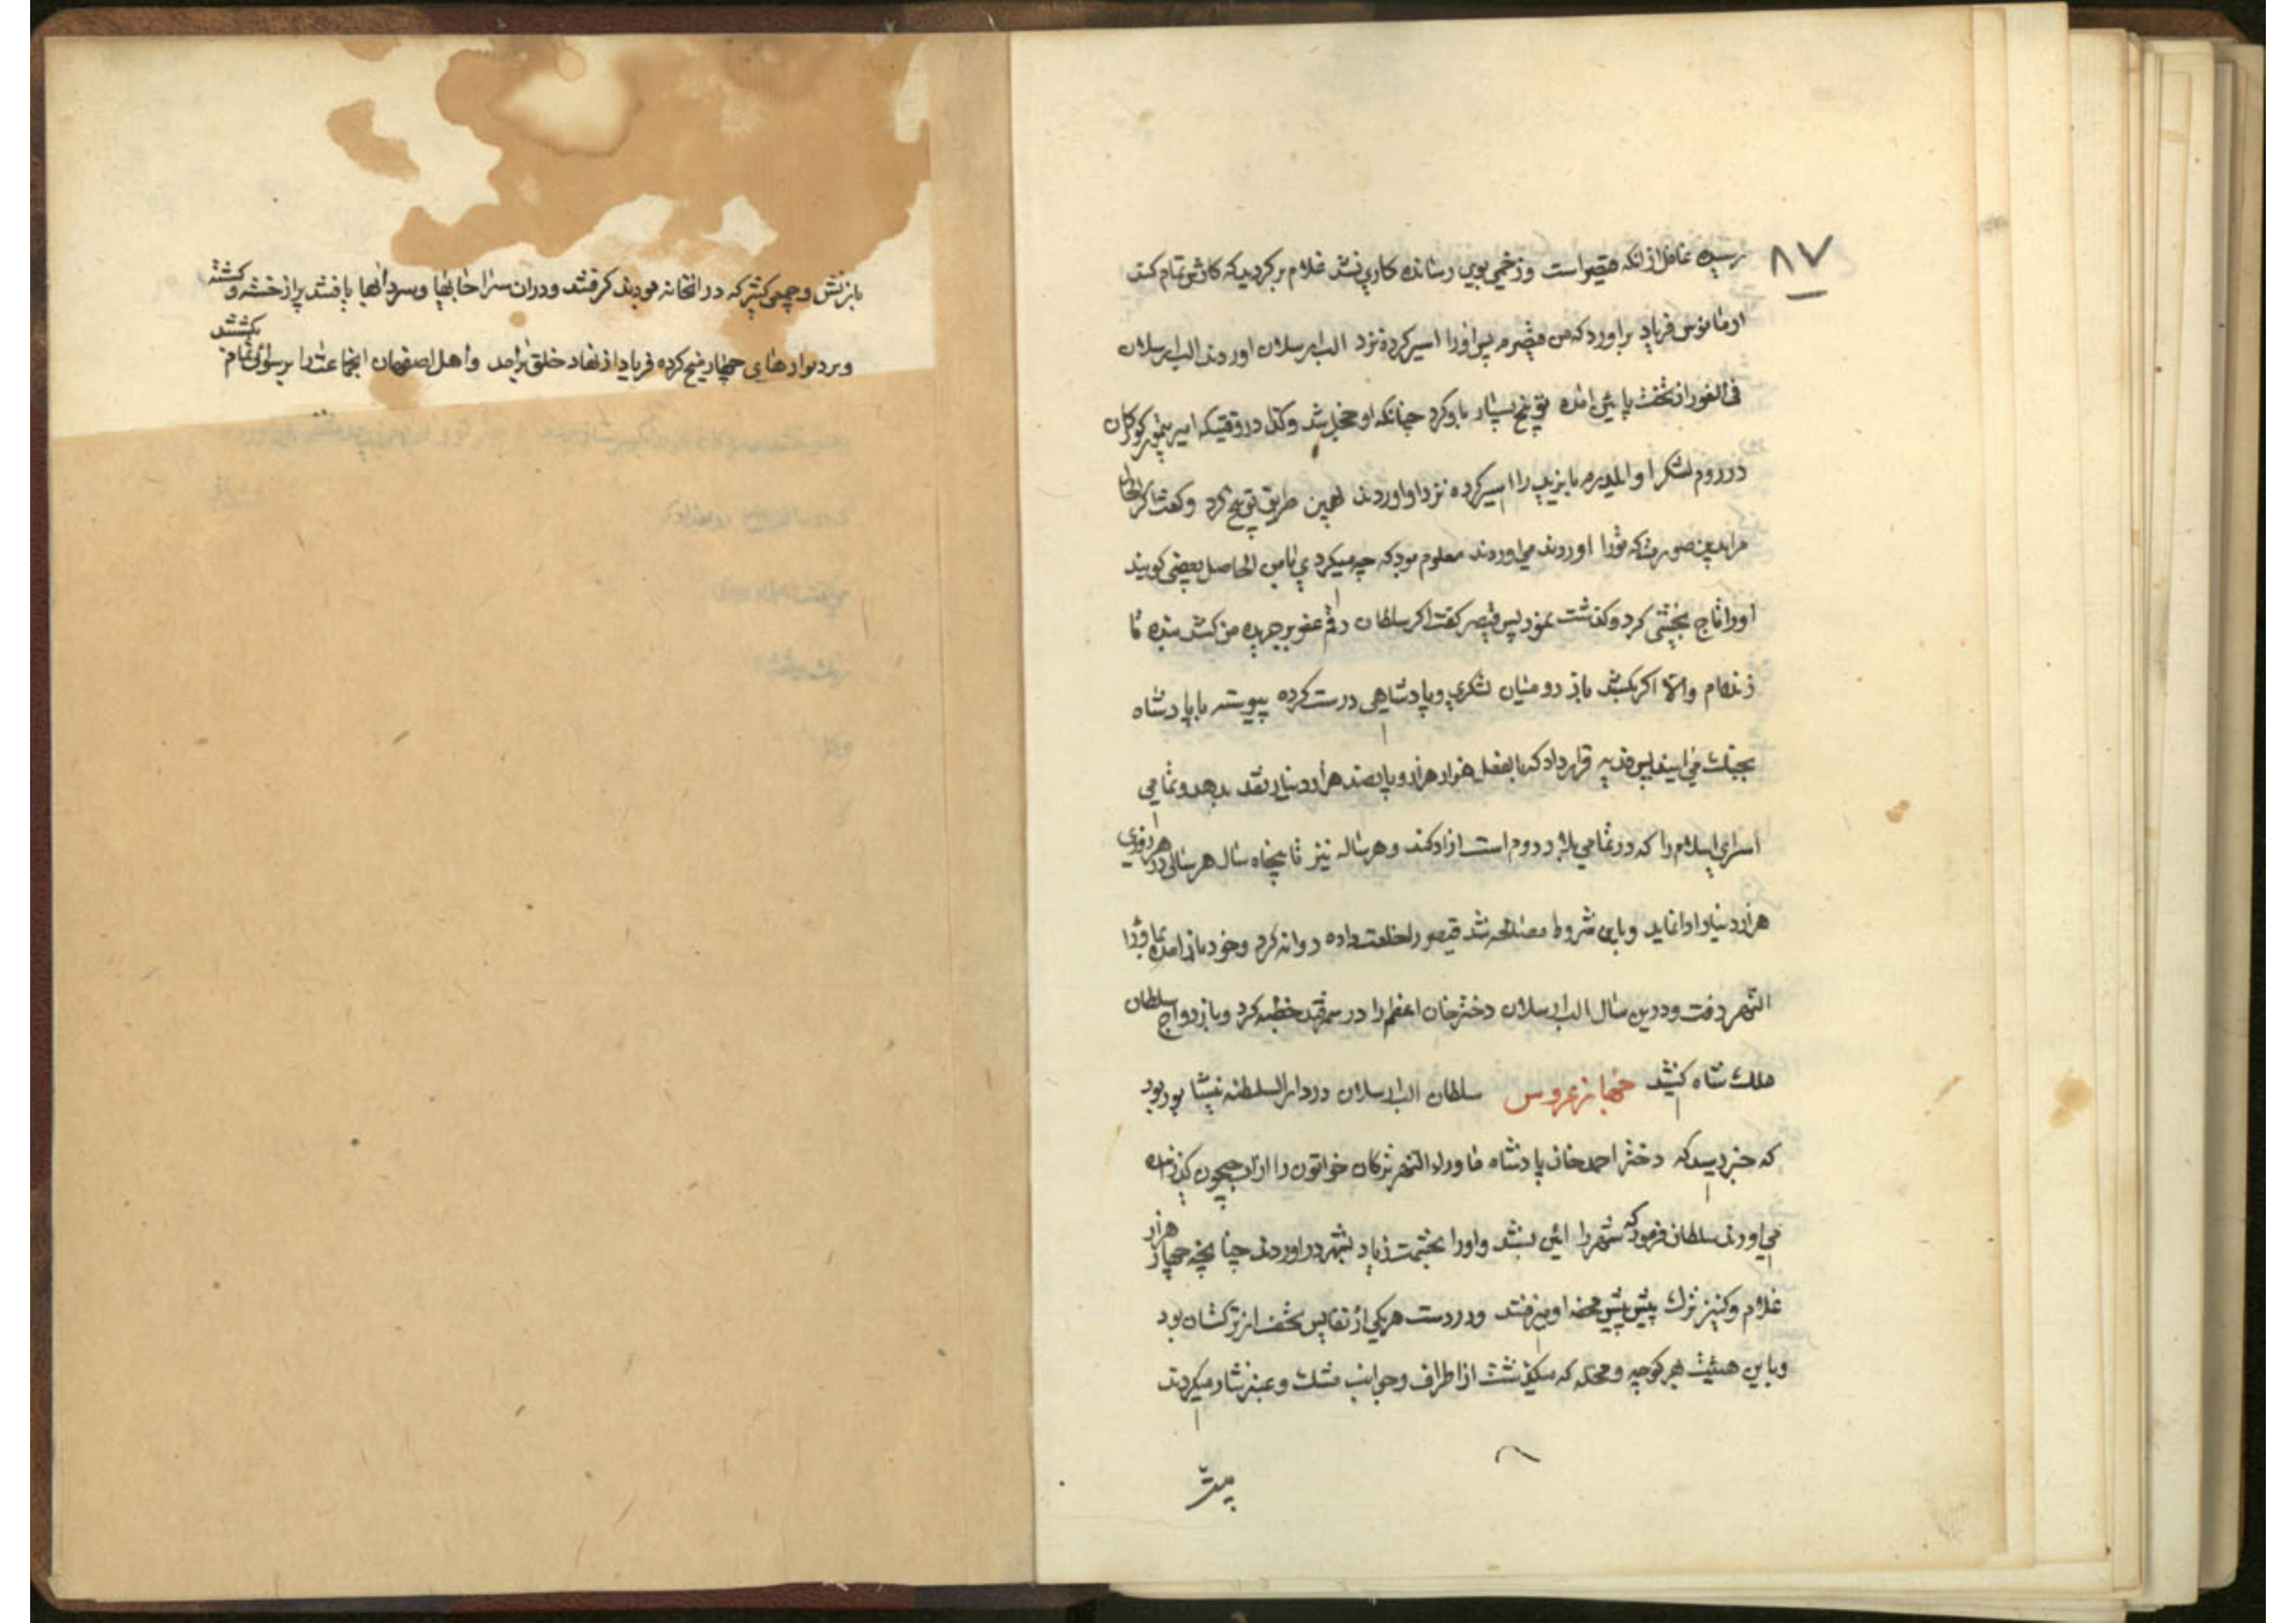 ۸۷
رسیده غافل از انکه قیصر است و زخمی بوی رسانده کاری نشد غلام برکردید که کارش تمام کند
ارمانوس فریاد براورد که من قیصرم پس اورا اسیر کرده نزد الب ارسلان اوردند الب ارسلان
فی الفور از تخت پایین امده توبیخ بسیار باو کرد چنانکه او خجل شد و کذا در وقتیکه امیر تیمور کورکان
در روم لشکر او ایلدرم بایزید را اسیر کرده نزد او اوردند بهمین طریق توبیخ کرد و کفت اکر
مرا بدین صورت که تورا اوردند می اوردند معلوم بود که چه میکردی بامن الحاصل بعضی کویند
اورا تاج بخشی کرد و کذشت نمود پس قیصر کفت اکر سلطان رقم عفو بر جریده من کشد بنده تا
زنده‌ام والا اکر بکشد باز رومیان لشکری و پادشاهی درست کرده پیوسته با پادشاه
بجنک می ایند پس فدیه قرار داد که بالفعل هزار هزار و پانصد هزار دینار نقد بدهد و تمامی
اسرای اسلام را که در تمامی بلاد روم است ازاد کند و هرساله نیز تا پنجاه سال هر سالی در هر روزی
هزار دینار ادا نماید و باین شروط مصالحه شد قیصر را خلعت داده روانه کرد و خود بازامده بماورا
النهر رفت و درین سال الب ارسلان دختر خان اعظم را در سمرقند خطبه کرد و بازدواج سلطان
ملک شاه کشید جهاز عروس سلطان الب ارسلان در دار السلطنه نیشابور بود
که خبر رسید که دختر احمد خان پادشاه ماوراء النهر ترکان خواتون را از اب جیحون کذرانده
می اورند سلطان فرمود که شهر را ائین بستند و اورا بحشمت زیاد بشهر دراوردند چنانچه چهار هزار
غلام و کنیز ترک پیش پیش محفه او میرفتند و در دست هر یکی از نفایس تحف از ترکستان بود
و باین هیئت بهر کوچه و محله که میکذشت از اطراف و جوانب مشک و عنبر نثار میکردند
بازنش و جمعی کثیر که در انخانه بودند کرفتند و دران سرا چاهها و سردابها یافتند پر از خسته و کشته
و بر دیوارهای چهار میخ کرده فریاد از نهاد خلق برامد و اهل اصفهان انجماعت را برسوائی تمام بکشتند